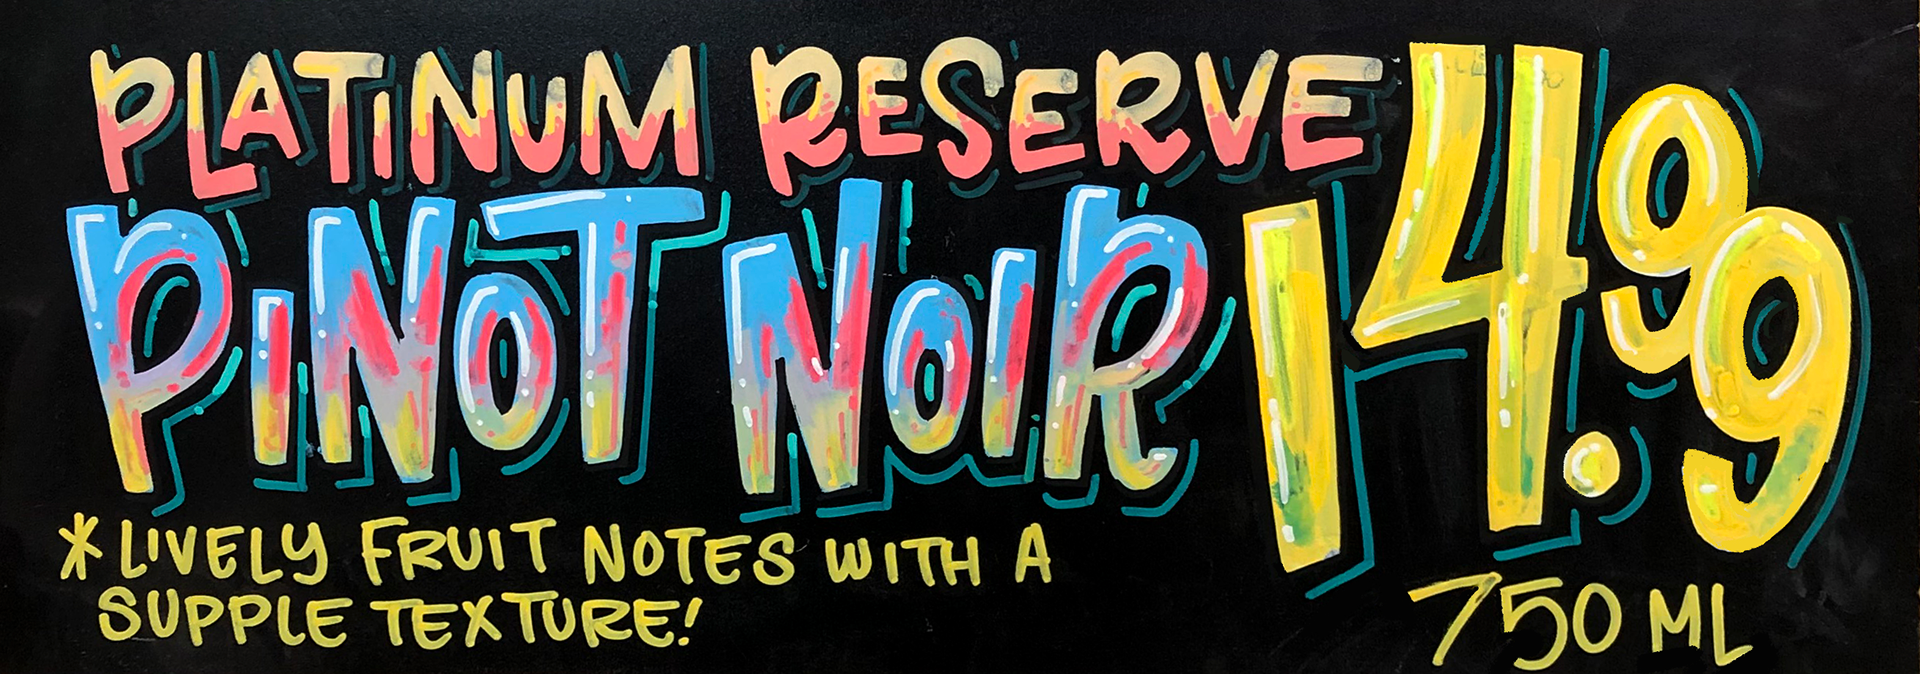 PLATINUM RESERVE
PINOT NOIR
14.99
*LIVELY FRUIT NOTES WITH A
SUPPLE TEXTURE!
750 ML